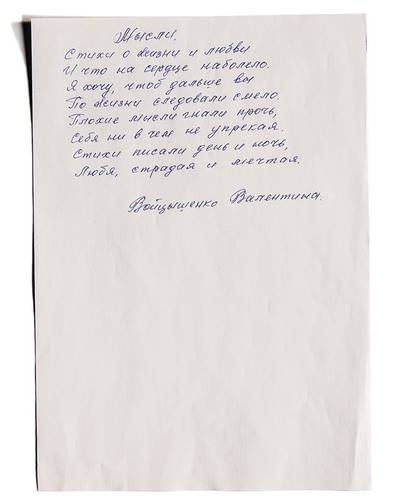 Мысли.
Стихи о жизни и любви
И что на сердце наболело.
Я хочу, чтоб дальше вы
По жизни следовали смело.
Плохие мысли гнали прочь,
Себя ни в чем не упрекая.
Стихи писали день и ночь,
Любя, страдая и мечтая.
Войцышенко Валентина.